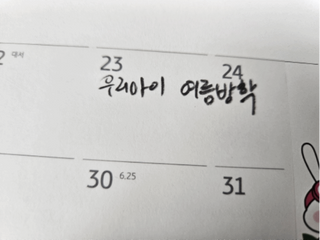 2 대서 23 24
우리아이 여름방학
30 6.25 31